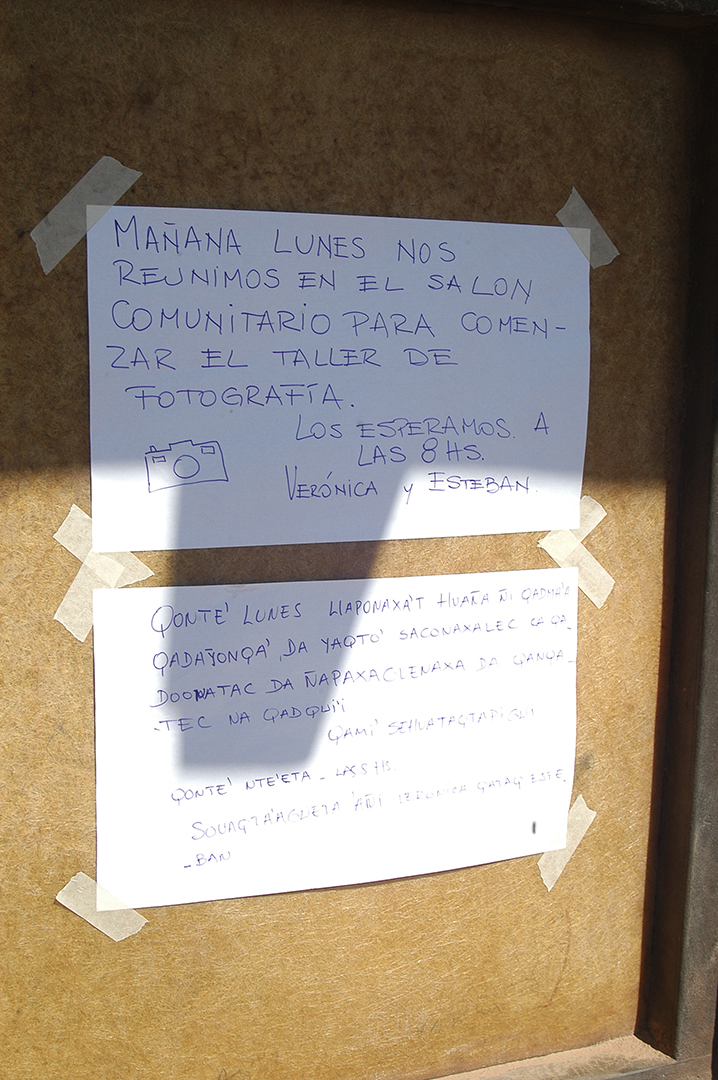 MAÑANA LUNES NOS
REUNIMOS EN EL SALON
COMUNITARIO PARA COMEN-
ZAR EL TALLER DE
FOTOGRAFÍA.
LOS ESPERAMOS. A
LAS 8 HS.
VERÓNICA y ESTEBAN.
QONTE' LUNES LIAPONAXA'T HUAÑA ÑI
QADAÑONQA', DA YAQTO' SACONAXALEC CA QA_
DA ÑAPAXACLENAXA DA
-TEC NA QADQUI'I
QAMI'
QONTE' NTE'ETA _
'AÑI VERONICA QATAQ ESTE_
-BAN